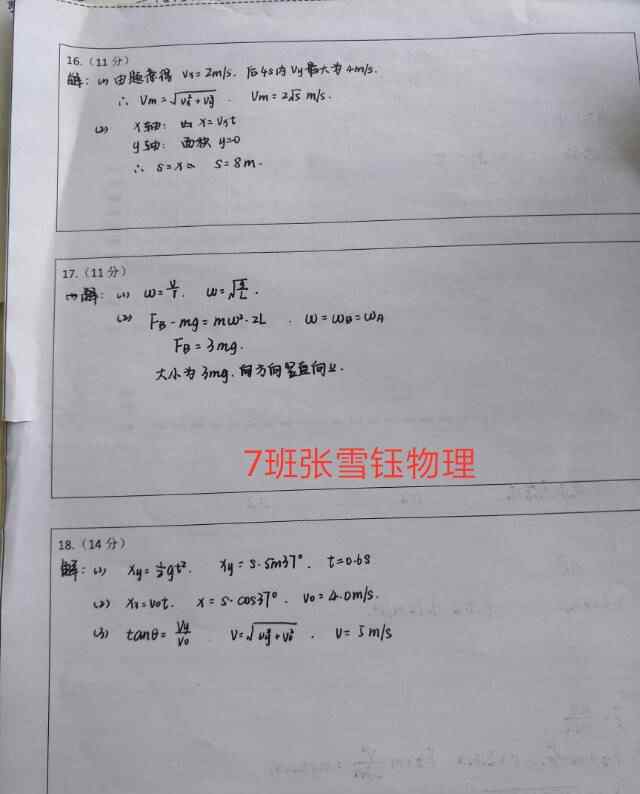 16.（11 分）
解：(1) 由题意得 Vx=2m/s. 后4s内 Vy最大为4m/s.
∴ Vm=√(Vx²+Vy²) . Vm=2√5 m/s.
(2) x轴： x=Vxt
y轴： 面积 y=0
∴ s=x S=8m.
17.（11 分）
解：(1) ω=v/r . ω=√(g/L) .
(2) FB-mg=mω²·2L . ω=ωB=ωA
FB=3mg.
大小为3mg. 方向竖直向上.
7班张雪钰物理
18.（14 分）
解：(1) xy=½gt². xy=s·sin37°. t=0.6s
(2) xx=v0t. x=s·cos37°. v0=4.0m/s.
(3) tanθ=Vy/V0 V=√(Vy²+V0²) . V=5m/s